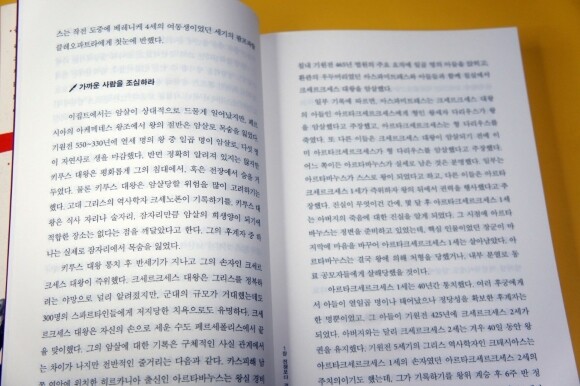 츠는 작전 도중에 베레니케 4세의 여동생이었던 세기의
클레오파트라에게 첫눈에 반했다.
가까운 사람을 조심하라
이집트에서는 암살이 상대적으로 드물게 일어났지만, 페르
시아의 아케메네스 왕조에서 왕의 절반은 암살로 목숨을 잃었다.
기원전 550~330년에 열세 명의 왕 중 일곱 명이 암살로, 다섯 명
이 자연사로 생을 마감했다. 반면 정확히 알려져 있지는 않지만
키루스 대왕은 평화롭게 그의 침대에서, 혹은 전장에서 숨을 거
두었다. 물론 키루스 대왕은 암살당할 위험을 많이 고려하기는
했다. 고대 그리스의 역사학자 크세노폰이 기록하기를, 키루스 대
왕은 식사 자리나 술자리, 잠자리만큼 암살의 희생양이 되기에
적합한 장소는 없다는 점을 깨달았다고 한다. 그의 후계자 중 하
나는 실제로 잠자리에서 목숨을 잃었다.
키루스 대왕 통치 후 반세기가 지나고 그의 손자인 크세르
크세스 대왕이 즉위했다. 크세르크세스 대왕은 그리스를 정복하
려는 야망으로 널리 알려졌지만, 군대의 규모가 거대했는데도
300명의 스파르타인들에게 저지당한 치욕으로도 유명하다. 크세
르크세스 대왕은 자신의 손으로 세운 수도 페르세폴리스에서 끝
을 맞이했다. 그의 암살에 대한 기록은 구체적인 사실 관계에서
는 차이가 나지만 전반적인 줄거리는 다음과 같다. 카스피해 남
쪽 연안에 위치한 히르카니아 출신인 아르타바누스는 왕실 경비
원대 기원전 465년 법원의 주요 요직에 일곱 명의 아들을 앉히고,
환관의 우두머리였던 아스파미트레스와 아들들과 함께 침실에서
크세르크세스 대왕을 암살했다.
일부 기록에 따르면, 아스파미트레스는 크세르크세스 대왕
의 아들인 아르타크세르크세스에게 형인 왕세자 다리우스가 왕
을 암살했다고 주장했고, 아르타크세르크세스는 형 다리우스를
죽였다. 또 다른 이들은 크세르크세스 대왕이 암살되기 전에 이
미 아르타크세르크세스가 형 다리우스를 죽였다고 주장했다.
어느 쪽이든 아르타바누스가 실세로 남은 것은 분명했다. 일부는
아르타바누스가 스스로 왕이 되었다고 하고, 다른 이들은 아르타
크세르크세스 1세가 즉위하자 왕의 뒤에서 권력을 행사했다고 주
장했다. 진실이 무엇이건 간에, 몇 달 후 아르타크세르크세스 1세
는 아버지의 죽음에 대한 진실을 알게 되었다. 그 시점에 아르타
바누스는 정변을 준비하고 있었는데, 핵심 인물이었던 장군이 마
지막에 마음을 바꾸어 아르타크세르크세스 1세는 살아남았다. 아
르타바누스는 결국 왕에 의해 처형을 당했거나, 내부 분열로 동
료 공모자들에게 살해당했을 것이다.
아르타크세르크세스 1세는 60년간 통치했다. 여러 후궁에게
서 아들이 열일곱 명이나 태어났으나 정당성을 확보한 후계자는
한 명뿐이었고, 그 아들이 기원전 425년에 크세르크세스 2세가
되었다. 아버지와는 달리 크세르크세스 2세는 겨우 40일 동안 왕
권을 유지했다. 기원전 5세기의 그리스 역사학자인 크테시아스는
아르타크세르크세스 1세의 손자였던 아르타크세르크세스 2세의
주치의이기도 했는데, 그가 기록하기를 왕위 계승 후 6주 만 정